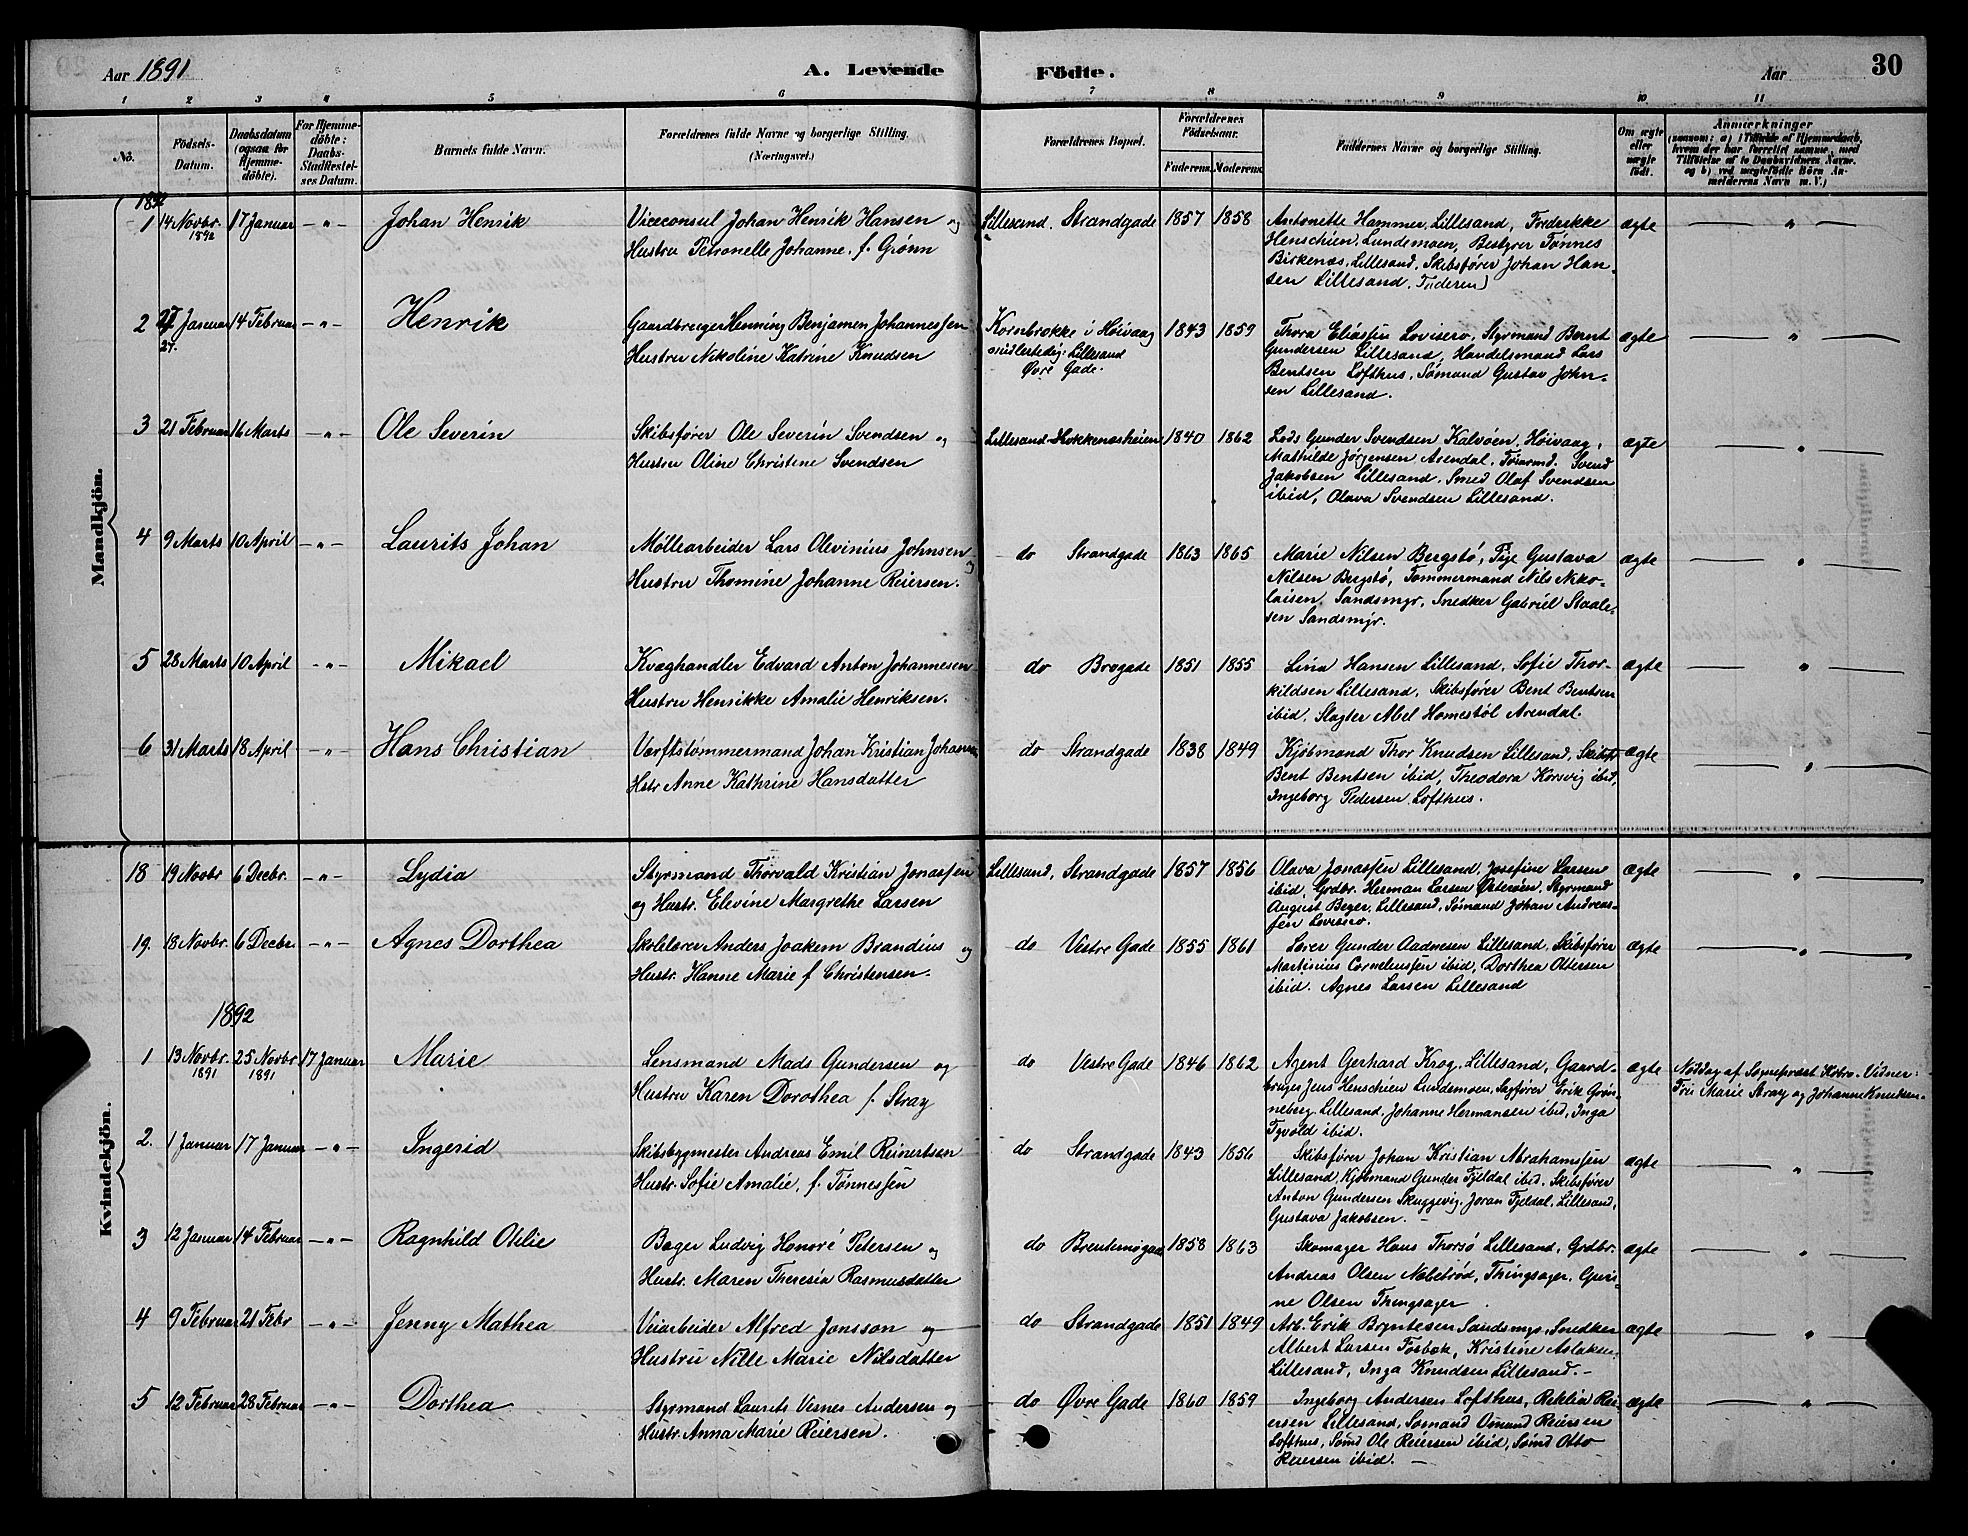 Aar 1891
A. Levende Födte.
Aar
30
1 2 3 4 5 6 7 8 9 10 11
No.
Födsels-Datum.
Daabsdatum (ogsaa for Hjemme-döbte).
For Hjemme-döbte: Daabs-Stadfæstel-ses Datum.
Barnets fulde Navn.
Forældrenes fulde Navne og borgerlige Stilling.
(Næringsvei.)
Forældrenes Bopæl.
Forældrenes Födselsaar.
Faderens. Moderens.
Faddernes Navne og borgerlige Stilling.
Om ægte eller uægte födt.
Anmærkninger
(saasom: a) i Tilfælde af Hjemmedaab, hvem der har forrettet samme, med Tilföielse af to Daabsvidners Navne, og b) ved uægtefödte Börn An-melderens Navn m. V.)
Mandkjön.
1 14 Novbr. 17 Januar - " - Johan Henrik Viceconsul Johan Henrik Hansen og Lillesand. Strandgade 1857 1858 Antonette Hammer, Lillesand, Frederikke ægte "
1892 Hustru Petronelle Johanne, f. Grönn Henschien, Lundemoen, Bestyrer Tønnes
Birkenæs, Lillesand, Skibsfører Johan Han-
sen Lillesand, Faderen)
2 27 Januar 14 Februar - " - Henrik Gaardbruger Henning Benjamen Johannessen Kornbrokke i Høivaag 1843 1859 Thora Eliassen Lovisero, Styrmand Bernt ægte "
27. Hustru Nikoline Katrine Knudsen midlertidig: Lillesand Gundersen Lillesand, Handelsmand Lars
Øvre Gade. Bentsen Lofthus, Sømand Gustav John-
sen Lillesand.
3 21 Februar 16 Marts - " - Ole Severin Skibsfører Ole Severin Svendsen og Lillesand 1840 1862 Lods Gunder Svendsen Kalvøen, Høivaag, ægte "
Hustru Oline Christine Svendsen Mathilde Jørgensen Arendal, Svend
Jakobsen Lillesand. Smed Olaf Svendsen
ibid, Olava Svendsen Lillesand.
4 9 Marts 10 April - " - Laurits Johan Møllearbeider Lars Olevinius Johnsen og do Strandgade 1863 1865 Marie Nilsen Bergstø, Pige Gustava ægte "
Hustru Thomine Johanne Reiersen. Nilsen Bergstø, Tømmermand Nils Niko-
laisen, Sandsmyr, Snedker Gabriel Staale-
sen Sandsmyr.
5 28 Marts 10 April - " - Mikael Kvæghandler Edvard Anton Johannesen do Brogade 1851 1855 Lina Hansen Lillesand, Sofie Thor- ægte "
Hustru Henrikke Amalie Henriksen. kildsen Lillesand, Skibsfører Bent Bentsen
ibid, Slagter Abel Homestöl Arendal.
6 31 Marts 18 April " Hans Christian Værftstømmermand Johan Kristian Johansen do Strandgade 1838 1849 Kjøbmand Thor Knudsen Lillesand, Skibsf. ægte "
Hstr Anne Kathrine Hansdatter Bent Bentsen ibid, Theodora Korsvig ibid,
Ingeborg Pedersen Lofthus.
Kvindekjön.
18 19 Novbr 6 Decbr. - " - Lydia Styrmand Thorvald Kristian Jonassen Lillesand, Strandgade 1857 1856 Olava Jonassen Lillesand, Josefine Larsen ægte "
og Hustr. Elevine Margrethe Larsen ibid, Grdbr. Herman Larsen Østerøen, Styrmand
August Beger, Lillesand, Sømand Johan Andreas-
sen Lovisero.
19. 18 Novbr. 6 Decbr - " - Agnes Dorthea Skolelærer Anders Joakem Brandius og do Vestre Gade 1855 1861 Lærer Gunder Aadnesen Lillesand, Skibsfører ægte "
Hustr. Hanne Marie f. Christensen. Martinius Corneliussen ibid, Dorthea Ottersen
ibid. Agnes Larsen Lillesand
1892
1 13 Novbr. 25 Novbr 17 Januar Marie Lensmand Mads Gundersen og do Vestre Gade 1846 1862 Agent Gerhard Krog, Lillesand, Gaard- ægte Nöddøg af Sognepræst Vidner:
1891 1891 Hustru Karen Dorothea f. Stray bruger Jens Henschien Lundemoen, Sagfører Erik Grøn- Fru Marie Stray og Johanne Knudsen.
neberg Lillesand, Johanne Hermansen ibid, Inga
Tyvold ibid.
2. 1 Januar 17 Januar - " - Ingerid Skibsbygmester Andreas Emil Reinertsen do Strandgade 1843 1856 Skibsfører Johan Kristian Abrahamssen ægte "
Hustr. Sofie Amalie, f. Tønnessen Lillesand, Kjøbmand Gunder Fjeldal ibid. Skibsfører
Anton Gundersen Skuggevig, Joran Fjeldal, Lillesand,
Gustava Jakobsen. -
3 12 Januar 14 Februar - " - Ragnhild Otelie Bager Ludvig Honoré Petersen og do 1858 1863 Skomager Hans Thorsø Lillesand, Grdbr. ægte "
Hustr. Maren Theresia Rasmusdatter Andreas Olsen Næbetrød, Thingsager, Guri-
ne Olsen Thingsager
4 9 Februar 21 Febr - " - Jenny Mathea Veiarbeider Alfred Jonsson og do Strandgade 1851 1849 Arb. Erik Bryntesen Sandsmyr, Snedker ægte "
Hustru Nille Marie Nilsdatter Albert Larsen Fosbæk, Kristine Aslaksen
Lillesand, Inga Knudsen Lillesand. -
5 12 Februar 28 Februar - " - Dorthea Styrmand Laurits Vernes Andersen og do Øvre Gade 1860 1859 Ingeborg Andersen Lofthus, Reklia Rei- ægte "
Hustr. Anna Marie Reiersen. ersen Lillesand, Sømand Osmund Reiersen
Lofthus, Sømd Ole Reiersen ibid, Sømd Otto
Reiersen ibid. -